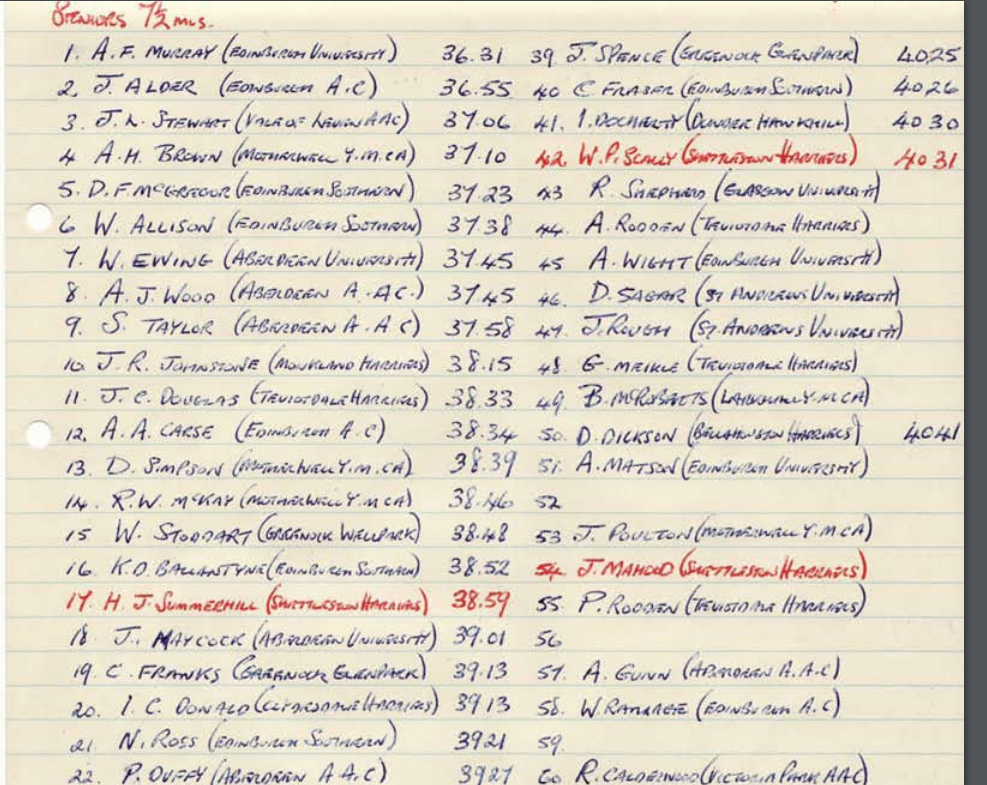 SENIORS 7½ MLS.
1. A.F. MURRAY (EDINBURGH UNIVERSITY) 36.31
2. J. ALDER (EDINBURGH A.C) 36.55
3. J.L. STEWART (VALE OF LEVEN AAC) 37.06
4 A.H. BROWN (MOTHERWELL Y.M.CA) 37.10
5. D.F. MCGREGOR (EDINBURGH SOUTHERN) 37.23
6 W. ALLISON (EDINBURGH SOUTHERN) 37.38
7. W. EWING (ABERDEEN UNIVERSITY) 37.45
8. A.J. WOOD (ABERDEEN A.A.C.) 37.45
9. S. TAYLOR (ABERDEEN A.A C) 37.58
10 J.R. JOHNSTONE (MONKLAND HARRIERS) 38.15
11. J.C. DOUGLAS (TEVIOTDALE HARRIERS) 38.33
12. A.A. CARSE (EDINBURGH A.C) 38.34
13. D. SIMPSON (MOTHERWELL Y.M.CA) 38.39
14. R.W. MCKAY (MOTHERWELL Y.M CA) 38.46
15 W. STODDART (GREENOCK WELLPARK) 38.48
16. K.D. BALLANTYNE (EDINBURGH SOUTHERN) 38.52
17. H. J. SUMMERHILL (SHETTLESTON HARRIERS) 38.59
18 J. MAYCOCK (ABERDEEN UNIVERSITY) 39.01
19. C. FRANKS (GREENOCK GLENPARK) 39.13
20. I.C. DONALD (CLYDESDALE HARRIERS) 39 13
21. N. ROSS (EDINBURGH SOUTHERN) 3921
22. P. DUFFY (ABERDEEN A A.C) 3927
39 J. SPENCE (GREENOCK GLENPARK) 40.25
40 C. FRASER (EDINBURGH SOUTHERN) 40 26
41. I. DOCHERTY (DUNDEE HAWKHILL) 40 30
42. W.P. SCALLY (SHETTLESTON HARRIERS) 40 31
43 R. SHEPHERD (GLASGOW UNIVERSITY)
44. A. RODDEN (TEVIOTDALE HARRIERS)
45 A. WIGHT (EDINBURGH UNIVERSITY)
46. D. SAGAR (ST ANDREWS UNIVERSITY)
47. J. ROUGH (ST. ANDREWS UNIVERSITY)
48. G. MEIKLE (TEVIOTDALE HARRIERS)
49. B. MCROBERTS (LARKHALL Y.M.CA)
50. D. DICKSON (BELLAHOUSTON HARRIERS) 4041
51. A. MATSON (EDINBURGH UNIVERSITY)
52
53 J. POULTON (MOTHERWELL Y.M.CA)
54. J. MAHOOD (SHETTLESTON HARRIERS)
55. P. RODDEN (TEVIOTDALE HARRIERS)
56
57. A. GUNN (ABERDEEN A.A.C)
58. W. RAMAGE (EDINBURGH A.C)
59.
60 R. CALDERWOOD (VICTORIA PARK AAC)